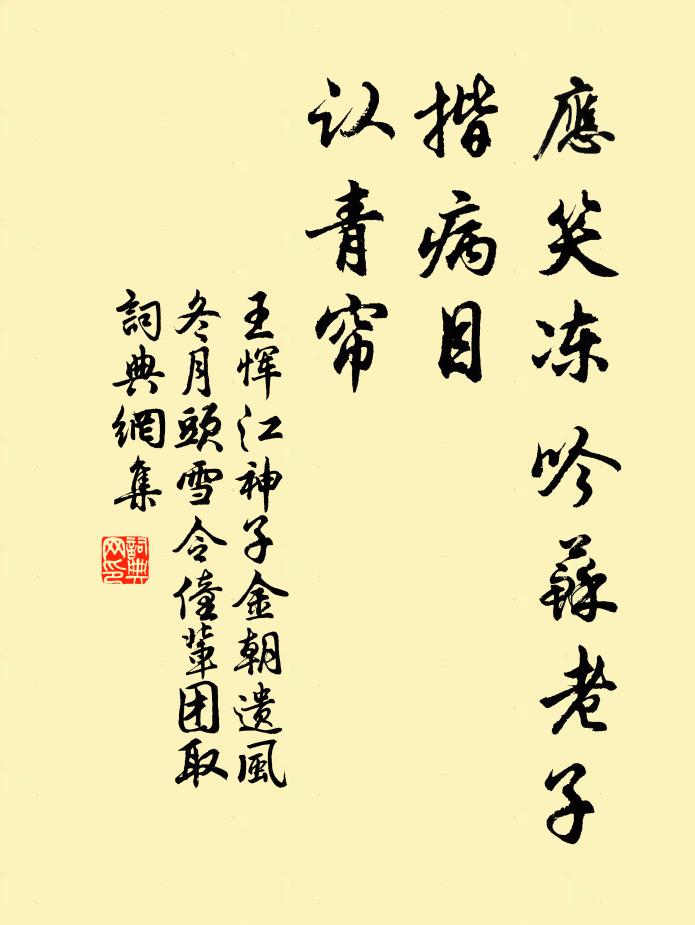 應笑冻吟蘇老子
揩病目
认青帘
王恽江神子金朝遗風
冬月頭雪令僮輩团取
詞典網集
詞典网印